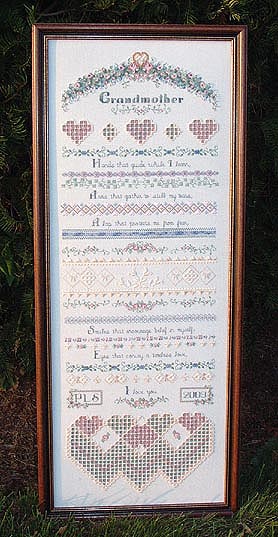 Grandmother
Hands that guide while I learn,
Arms that gather to still my fears,
A lap that protects me from
Smiles that encourage belief in myself,
Eyes that convey a timeless love,
I love you
PLS 2003